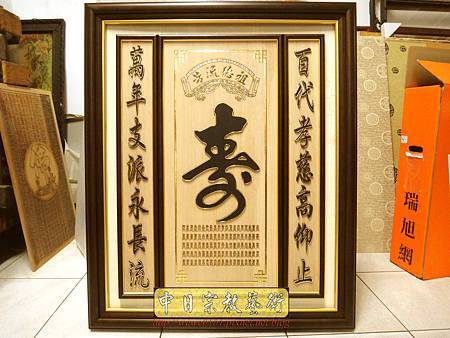 祖德流芳
百代孝慈高仰止
寿
萬年支派永長流
瑞旭網
中日宗教藝術